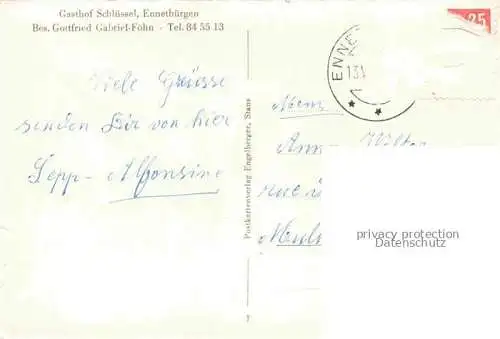 Gasthof Schlüssel, Ennetbürgen
Bes. Gottfried Gabriel-Föhn - Tel. 84 55 13
Viele Grüsse
senden Dir von hier
Sepp - Alfonsine
Postkartenverlag Engelberger, Stans
ENNE
25
privacy protection
Datenschutz